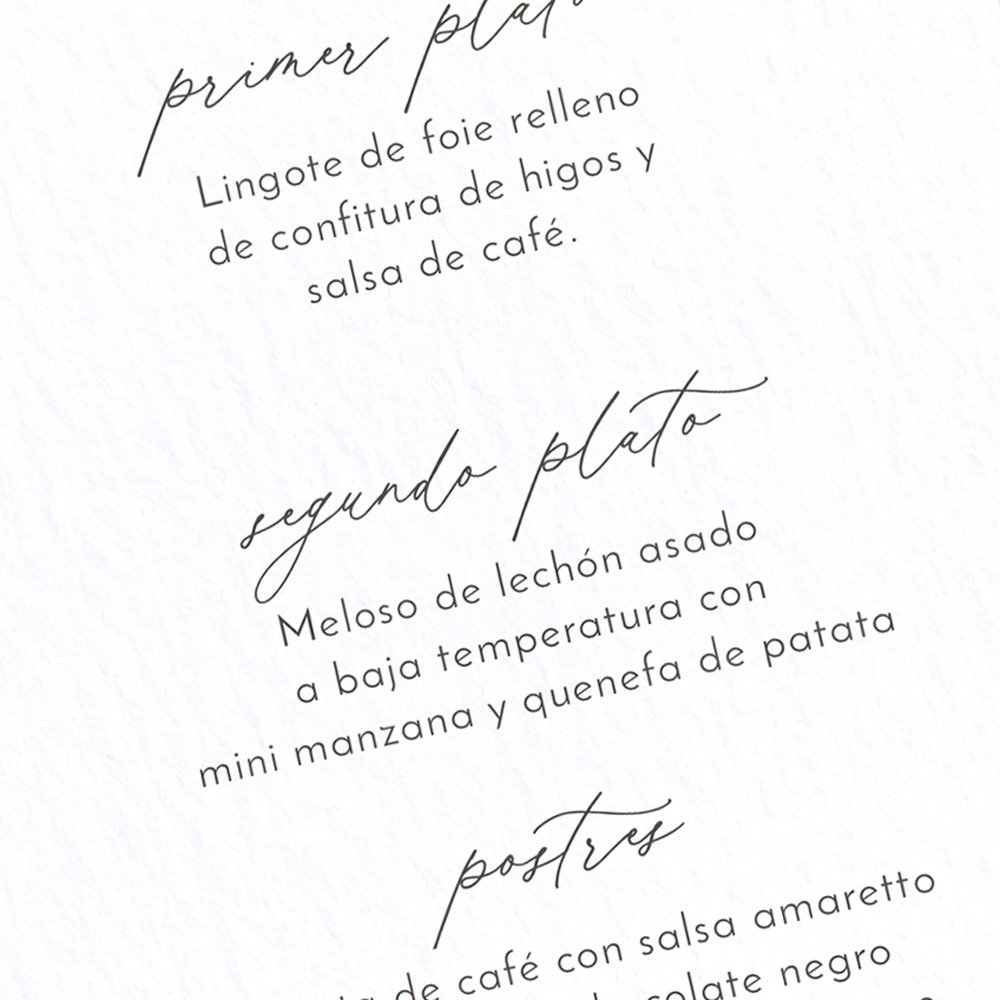 primer plato
Lingote de foie relleno
de confitura de higos y
salsa de café.
segundo plato
Meloso de lechón asado
a baja temperatura con
mini manzana y quenefa de patata
postres
de café con salsa amaretto
negro